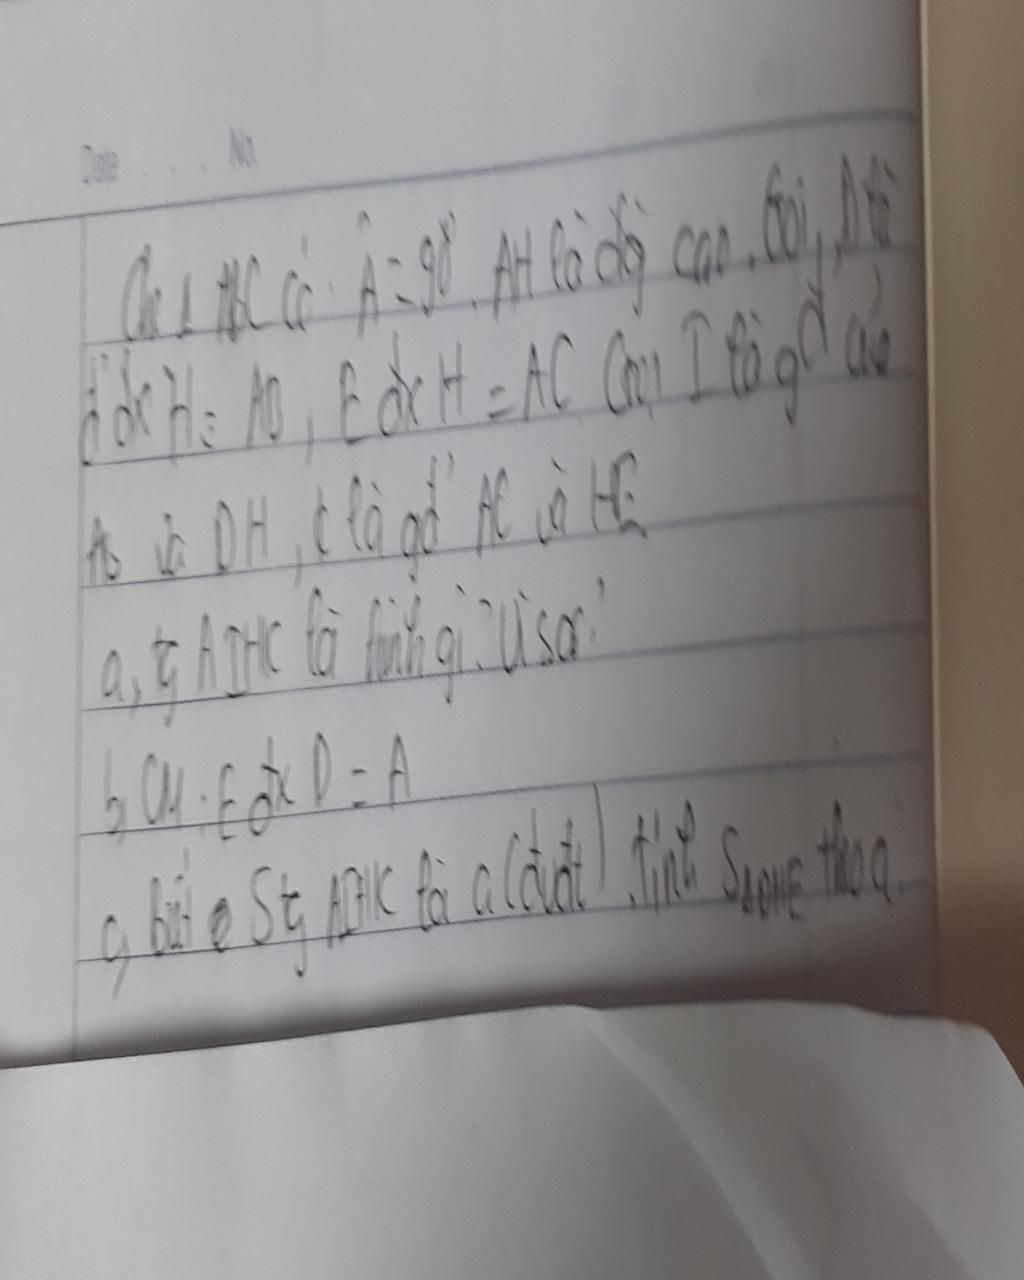 Date . . . . No.
Cho Δ ABC có Â = 90°. AH là đg cao. Gọi D là
đ' đx H = AB, E đx H = AC Gọi I là gđ của
AB và DH, K là gđ' AC và HE
a, tg AIHK là hình gì. Vì sao?
b, CM: E đx D = A
c, biết S tg AIHK là a (đvdt), tính SΔDHE theo a.